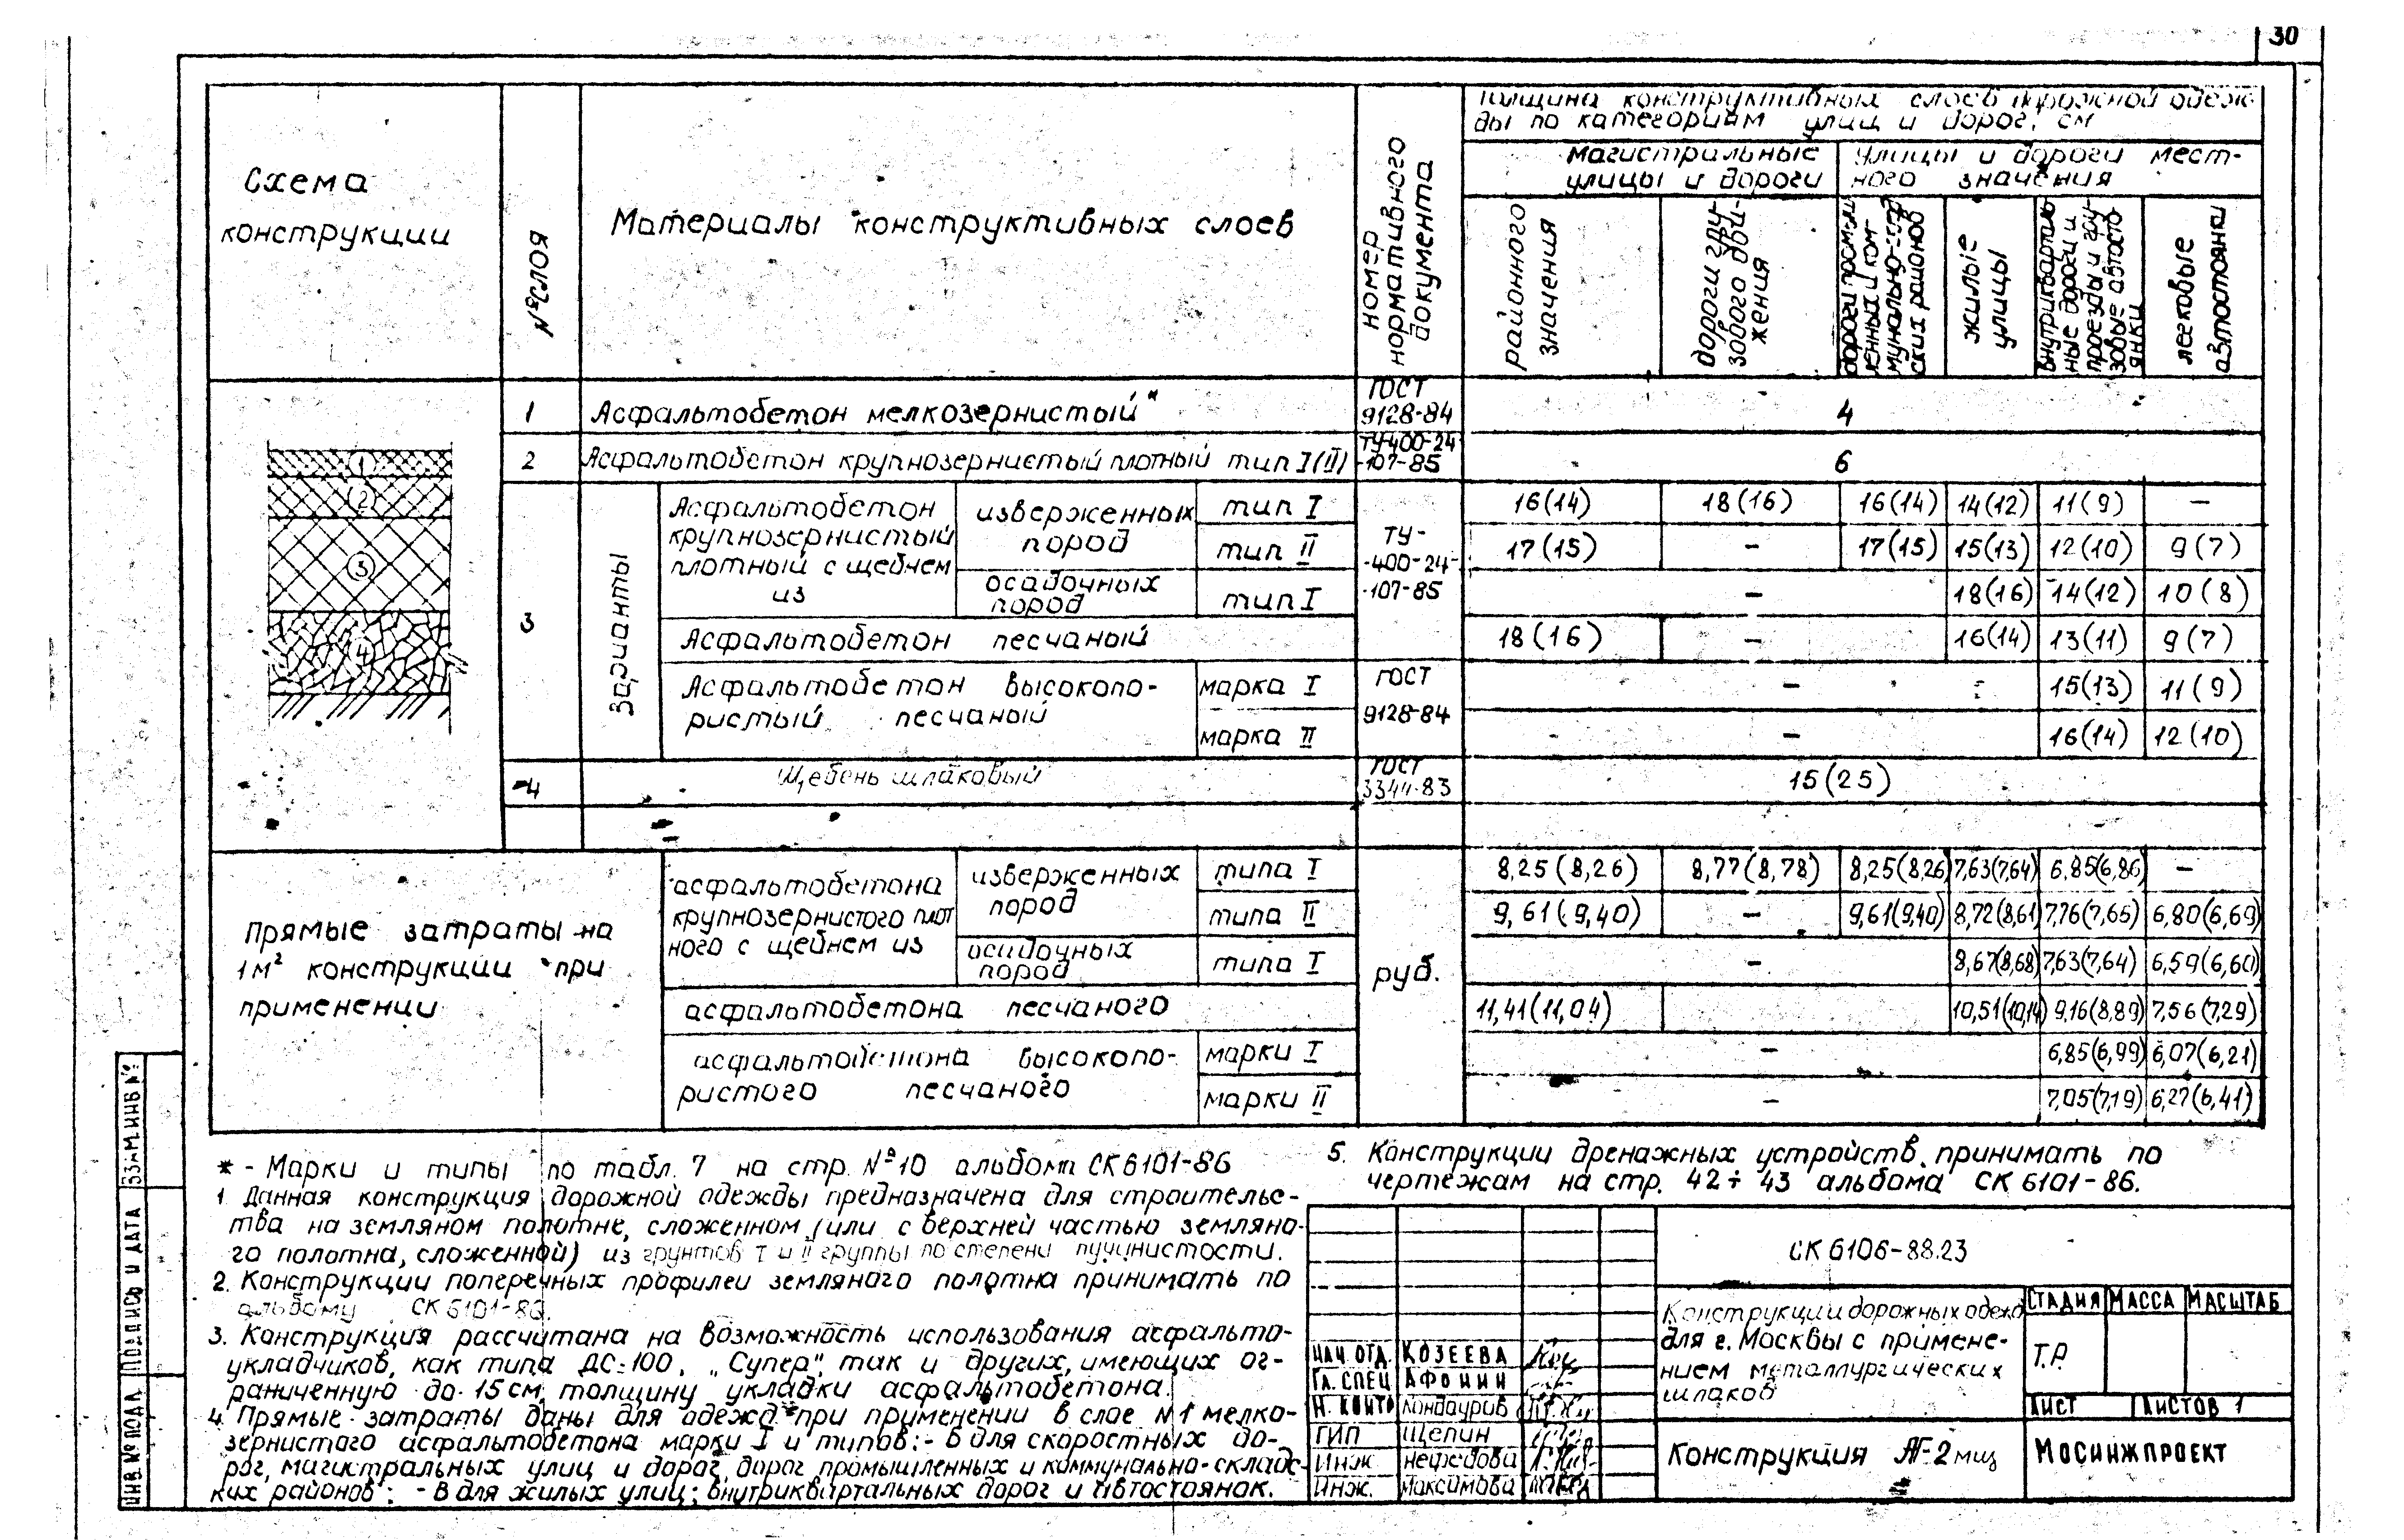 30
Схема
конструкции
№ слоя
Материалы конструктивных слоев
номер
нормативного
документа
Толщина конструктивных слоев дорожной одеж-
ды по категориям улиц и дорог, см
магистральные
улицы и дороги
улицы и дороги мест-
ного значения
районного
значения
дороги гру-
зового дви-
жения
дороги промыш-
ленных и ком-
мунально-склад-
ских районов
жилые
улицы
внутрикварталь-
ные дороги и
проезды и гру-
зовые автосто-
янки
легковые
автостоянки
1 Асфальтобетон мелкозернистый* ГОСТ 9128-84 4
2 Асфальтобетон крупнозернистый плотный тип I(II) ТУ-400-24-107-85 6
1
2
3
4
3
Варианты
Асфальтобетон
крупнозернистый
плотный с щебнем
из
изверженных
пород
тип I 16(14) 18(16) 16(14) 14(12) 11(9) —
тип II 17(15) – 17(15) 15(13) 12(10) 9(7)
осадочных
пород
тип I – 18(16) 14(12) 10(8)
ТУ-
-400-24-
-107-85
Асфальтобетон песчаный 18(16) – 16(14) 13(11) 9(7)
Асфальтобетон высокопо-
ристый песчаный
ГОСТ
9128-84
марка I – 15(13) 11(9)
марка II – 16(14) 12(10)
4 Щебень шлаковый ГОСТ 3344-83 15(25)
Прямые затраты на
1м² конструкции при
применении
асфальтобетона
крупнозернистого плот
ного с щебнем из
изверженных
пород
типа I 8,25(8,26) 8,77(8,78) 8,25(8,26) 7,63(7,64) 6,85(6,86) —
типа II 9,61(9,40) – 9,61(9,40) 8,72(8,61) 7,76(7,65) 6,80(6,69)
осадочных
пород
типа I – 8,67(8,68) 7,63(7,64) 6,59(6,60)
руб.
асфальтобетона песчаного 11,41(11,04) 10,51(10,14) 9,16(8,89) 7,56(7,29)
асфальтобетона высокопо-
ристого песчаного
марки I – 6,85(6,99) 6,07(6,21)
марки II – 7,05(7,19) 6,27(6,41)
* - Марки и типы по табл. 7 на стр. №10 альбома СК 6101-86
1. Данная конструкция дорожной одежды предназначена для строительс-
тва на земляном полотне, сложенном (или с верхней частью земляно-
го полотна, сложенной) из грунтов I и II группы по степени пучинистости.
2. Конструкции поперечных профилей земляного полотна принимать по
альбому СК 6101-86.
3. Конструкция рассчитана на возможность использования асфальто-
укладчиков, как типа ДС-100, „Супер", так и других, имеющих ог-
раниченную до 15 см, толщину укладки асфальтобетона.
4. Прямые затраты даны для одежд при применении в слое №1 мелко-
зернистого асфальтобетона марки I и типов: - Б для скоростных до-
рог, магистральных улиц и дорог, дорог промышленных и коммунально-складс-
ких районов: - В для жилых улиц; внутриквартальных дорог и автостоянок.
5. Конструкции дренажных устройств принимать по
чертежам на стр. 42÷43 альбома СК 6101-86.
СК 6106-88.23
Конструкции дорожных одежд
для г. Москвы с примене-
нием металлургических
шлаков
СТАДИЯ МАССА МАСШТАБ
Т.Р.
ЛИСТ ЛИСТОВ 1
Конструкция
МОСИНЖПРОЕКТ
НАЧ ОТД. КОЗЕЕВА
ГЛ. СПЕЦ АФОНИН
Н. КОНТР Кондауров
ГИП Щепин
Инж Нефедова
Инж. Максимова
ИНВ.№ ПОДЛ. ПОДПИСЬ И ДАТА ВЗАМ.ИНВ №